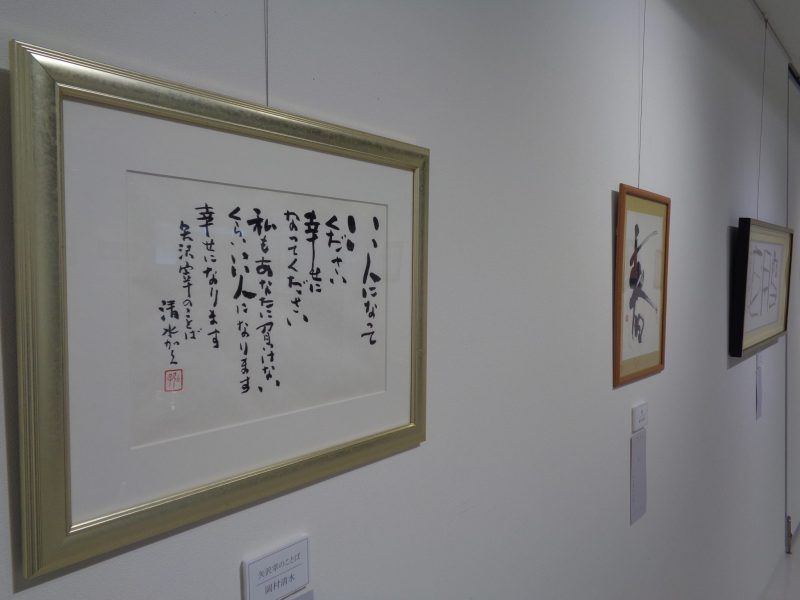 いい人になって
ください
幸せに
なってください
私もあなたに負けない
くらいいい人になります
幸せになります
矢沢宰のことば
清水かく
矢沢宰のことば
岡村清水